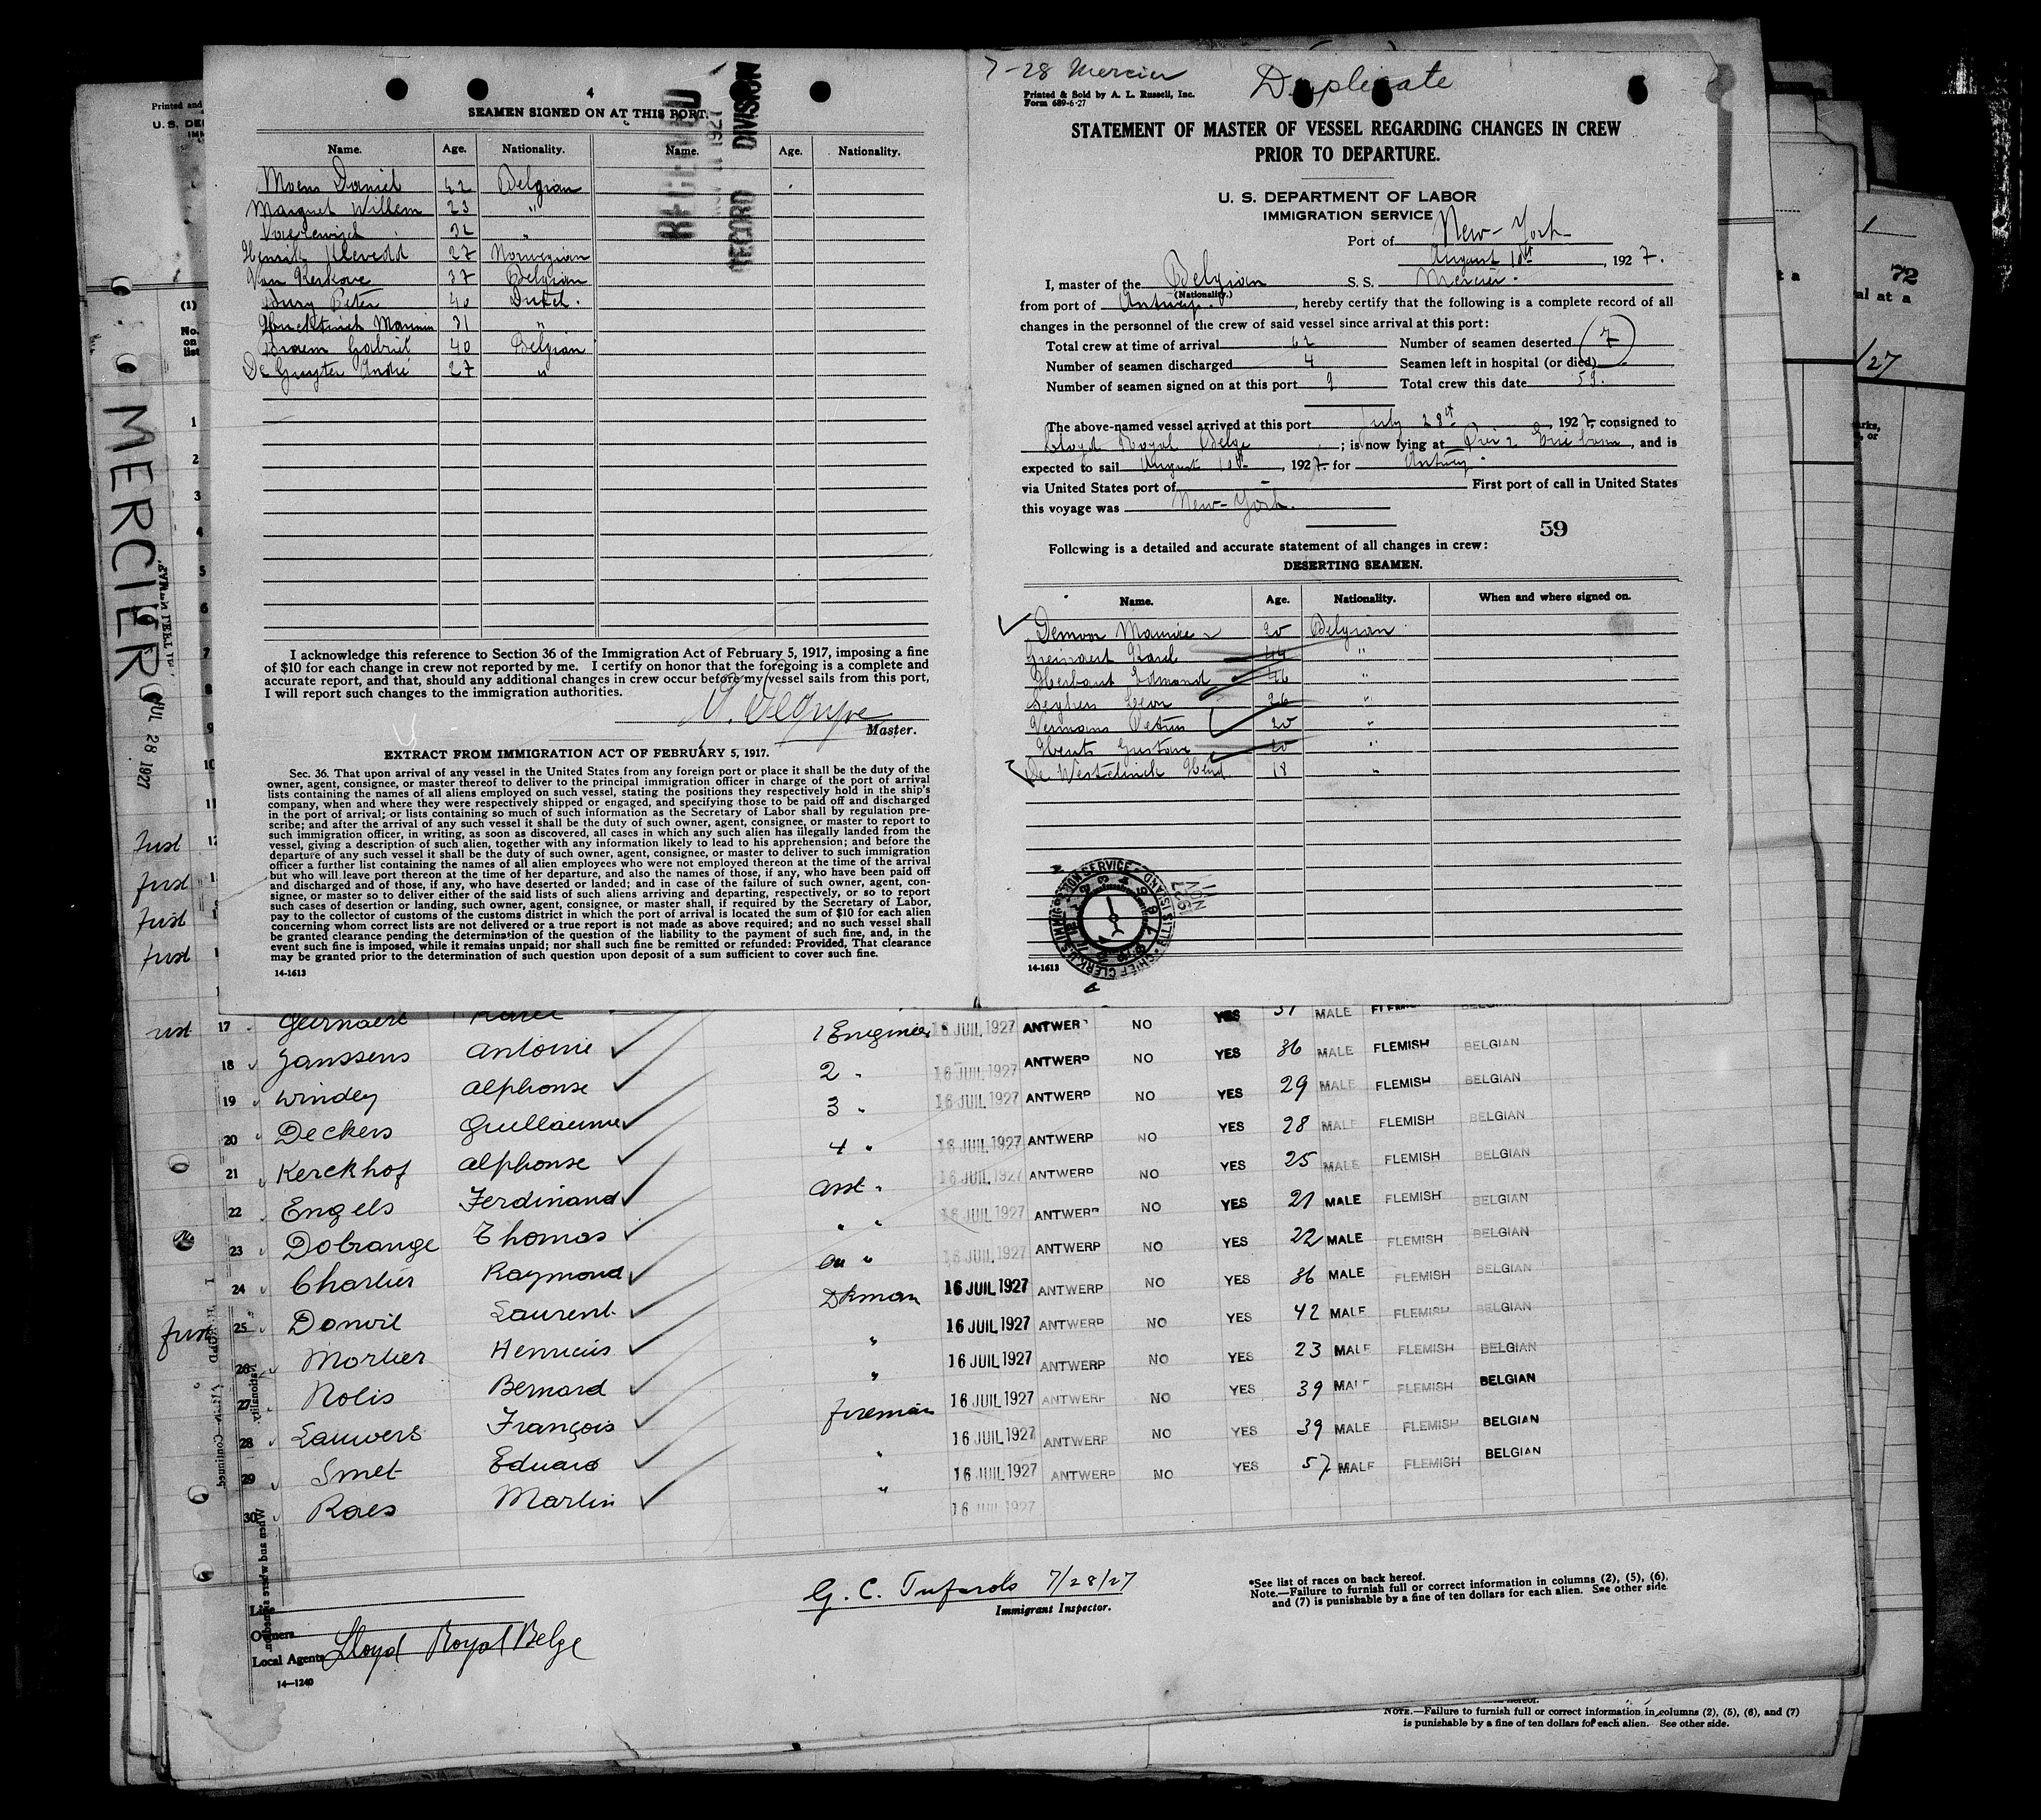 7-28 Mercier
Duplicate
Printed & Sold by A. L. Russell, Inc.
Form 689-6-27
STATEMENT OF MASTER OF VESSEL REGARDING CHANGES IN CREW
PRIOR TO DEPARTURE.
U. S. DEPARTMENT OF LABOR
IMMIGRATION SERVICE
Port of New-York
August 10th, 1927.
I, master of the Belgian S. S. Mercier.
(Nationality.)
from port of Antwerp., hereby certify that the following is a complete record of all
changes in the personnel of the crew of said vessel since arrival at this port:
Total crew at time of arrival 62 Number of seamen deserted 7
Number of seamen discharged 4 Seamen left in hospital (or died)
Number of seamen signed on at this port 9 Total crew this date 59.
The above-named vessel arrived at this port July 28st, 1927, consigned to
Lloyd Royal Belge; is now lying at Pier 2 Erie, and is
expected to sail August 10th, 1927 for Antwerp.
via United States port of - First port of call in United States
this voyage was New-York.
59
Following is a detailed and accurate statement of all changes in crew:
DESERTING SEAMEN.
Name. Age. Nationality. When and where signed on.
Demoor Maurice 20 Belgian
Karel 44 "
Herbaut Edmond 46 "
Seghers Leon 26 "
Vermans 20 "
Gustav 20 "
De Westelinck 18 "
14-1613
4
SEAMEN SIGNED ON AT THIS PORT.
RECEIVED
1927
RECORD DIVISION
Name. Age. Nationality. Name. Age. Nationality.
Moens Daniel 42 Belgian
Marquet Willem 23 "
32 "
Henrik Klevedd 27 Norwegian
Van Kerkove 37 Belgian
Bury Peter 40 Dutch.
31 "
Braem Gabriel 40 Belgian
De Gruyter André 27 "
I acknowledge this reference to Section 36 of the Immigration Act of February 5, 1917, imposing a fine
of $10 for each change in crew not reported by me. I certify on honor that the foregoing is a complete and
accurate report, and that, should any additional changes in crew occur before my vessel sails from this port,
I will report such changes to the immigration authorities.
Master.
EXTRACT FROM IMMIGRATION ACT OF FEBRUARY 5, 1917.
Sec. 36. That upon arrival of any vessel in the United States from any foreign port or place it shall be the duty of the
owner, agent, consignee, or master thereof to deliver to the principal immigration officer in charge of the port of arrival
lists containing the names of all aliens employed on such vessel, stating the positions they respectively hold in the ship's
company, when and where they were respectively shipped or engaged, and specifying those to be paid off and discharged
in the port of arrival; or lists containing so much of such information as the Secretary of Labor shall by regulation pre-
scribe; and after the arrival of any such vessel it shall be the duty of such owner, agent, consignee, or master to report to
such immigration officer, in writing, as soon as discovered, all cases in which any such alien has illegally landed from the
vessel, giving a description of such alien, together with any information likely to lead to his apprehension; and before the
departure of any such vessel it shall be the duty of such owner, agent, consignee, or master to deliver to such immigration
officer a further list containing the names of all alien employees who were not employed thereon at the time of the arrival
but who will leave port thereon at the time of her departure, and also the names of those, if any, who have been paid off
and discharged and of those, if any, who have deserted or landed; and in case of the failure of such owner, agent, con-
signee, or master so to deliver either of the said lists of such aliens arriving and departing, respectively, or so to report
such cases of desertion or landing, such owner, agent, consignee, or master shall, if required by the Secretary of Labor,
pay to the collector of customs of the customs district in which the port of arrival is located the sum of $10 for each alien
concerning whom correct lists are not delivered or a true report is not made as above required; and no such vessel shall
be granted clearance pending the determination of the question of the liability to the payment of such fine, and, in the
event such fine is imposed, while it remains unpaid; nor shall such fine be remitted or refunded: Provided, That clearance
may be granted prior to the determination of such question upon deposit of a sum sufficient to cover such fine.
14-1613
MERCIER
JUL 28 1927
17 Geernaert Karel 1 Engineer 16 JUIL 1927 ANTWERP NO YES 37 MALE FLEMISH BELGIAN
18 Janssens Antoine 2 " 16 JUIL 1927 ANTWERP NO YES 36 MALE FLEMISH BELGIAN
19 Windey Alphonse 3 " 16 JUIL 1927 ANTWERP NO YES 29 MALE FLEMISH BELGIAN
20 Deckers Guillaume 4 " 16 JUIL 1927 ANTWERP NO YES 28 MALE FLEMISH BELGIAN
21 Kerckhof Alphonse Asst " 16 JUIL 1927 ANTWERP NO YES 25 MALE FLEMISH BELGIAN
22 Engels Ferdinand " " 16 JUIL 1927 ANTWERP NO YES 21 MALE FLEMISH BELGIAN
23 Dobrange Thomas " 16 JUIL 1927 ANTWERP NO YES 22 MALE FLEMISH BELGIAN
24 Charlier Raymond Dkman 16 JUIL 1927 ANTWERP NO YES 36 MALE FLEMISH BELGIAN
25 Donvil Laurent " 16 JUIL 1927 ANTWERP NO YES 42 MALE FLEMISH BELGIAN
26 Mortier Henricus " 16 JUIL 1927 ANTWERP NO YES 23 MALE FLEMISH BELGIAN
27 Nolis Bernard fireman 16 JUIL 1927 ANTWERP NO YES 39 MALE FLEMISH BELGIAN
28 Lauwers François " 16 JUIL 1927 ANTWERP NO YES 39 MALE FLEMISH BELGIAN
29 Smet Eduard " 16 JUIL 1927 ANTWERP NO YES 57 MALE FLEMISH BELGIAN
30 Raes Martin 16 JUIL 1927
Line
Owners
Local Agents Lloyd Royal Belge
14-1240
G. C. Tufarolo 7/28/27
Immigrant Inspector.
*See list of races on back hereof.
Note.—Failure to furnish full or correct information in columns (2), (5), (6),
and (7) is punishable by a fine of ten dollars for each alien. See other side
NOTE.—Failure to furnish full or correct information in columns (2), (5), (6), and (7)
is punishable by a fine of ten dollars for each alien. See other side.
72